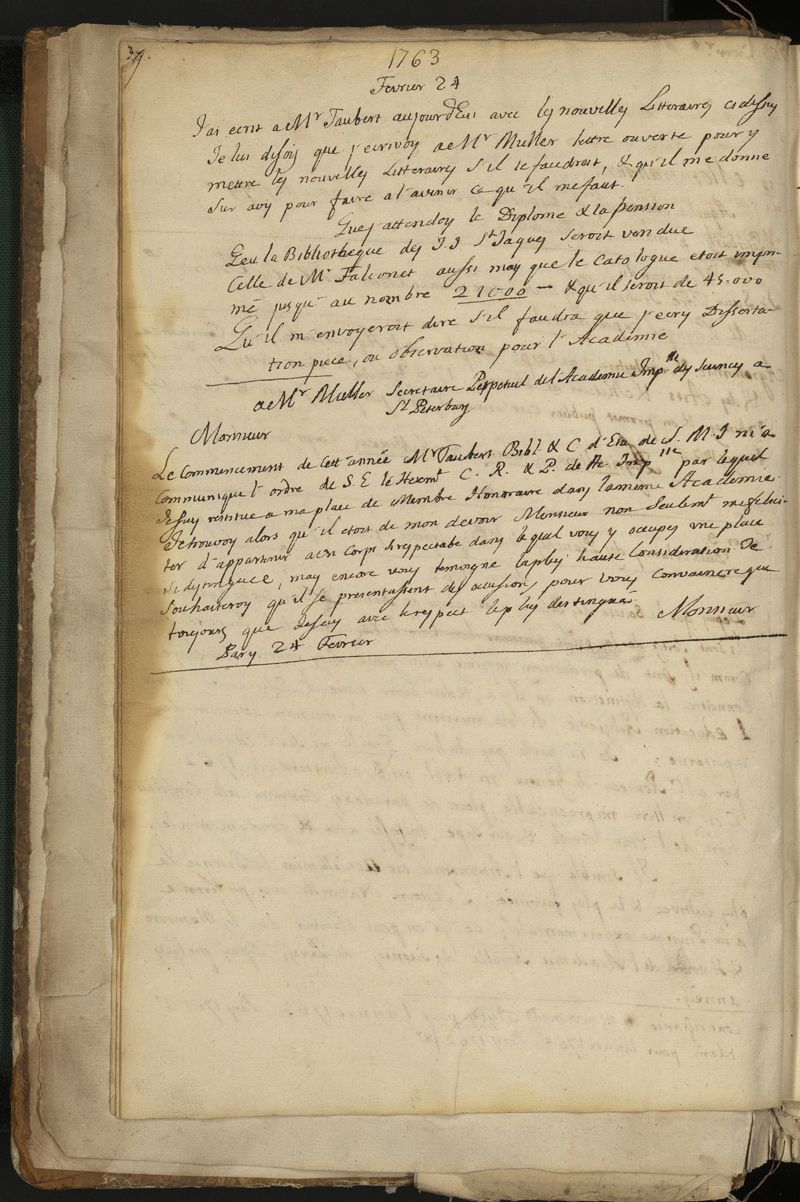 39.
1763
Fevrier 24
J'ai ecrit a Mr Taubert aujourdEui avec les nouvelles Litteraires cidessus
Je lui disois que j'ecrivois a Mr Muller lettre ouverte pour y
mettre les nouvelles Litteraires s'il le faudroit, & qu'il me donne
sur avis pour faire a l'avenir ce qu'il me faut.
Que j'attendois le Diplome & la pension
Que la Bibliotheque des J.J St Jaques seroit vendue
Celle de Mr Falconet aussi mais que le Catalogue etoit impri-
mé jusqu'au nombre 21000 — & qu'il seroit de 45.000
Qu'il m'envoyeroit dire s'il faudra que j'ecris Disserta-
tion piece, ou observation pour l'Academie
a Mr Muller Secretaire Perpetuel de l'Academie Implle des sciences a
St Peterburg
Monsieur
Le Commencement de cett'année Mr Taubert Bibl. & C. d'Eta de S. M. I m'a
communiqué l'ordre de S. E le Hexemt C. R. & P. de Ac Implle par lequel
Je suis restitué a ma place de Membre Honoraire dans la meme Academie.
Je trouvois alors qu'il etoit de mon devoir Monsieur non seulemt me felici-
ter d'appartenir a un Corps si respectabe dans lequel vous y occupes une place
si distinguee, mais encore vous temoigne la plus haute Consideration Je
souhaiterois qu'il se presentassent des occasions pour vous convaincre que
toujours que je suis avec le respect le plus destingué
Monsieur
Paris 24 Fevrier